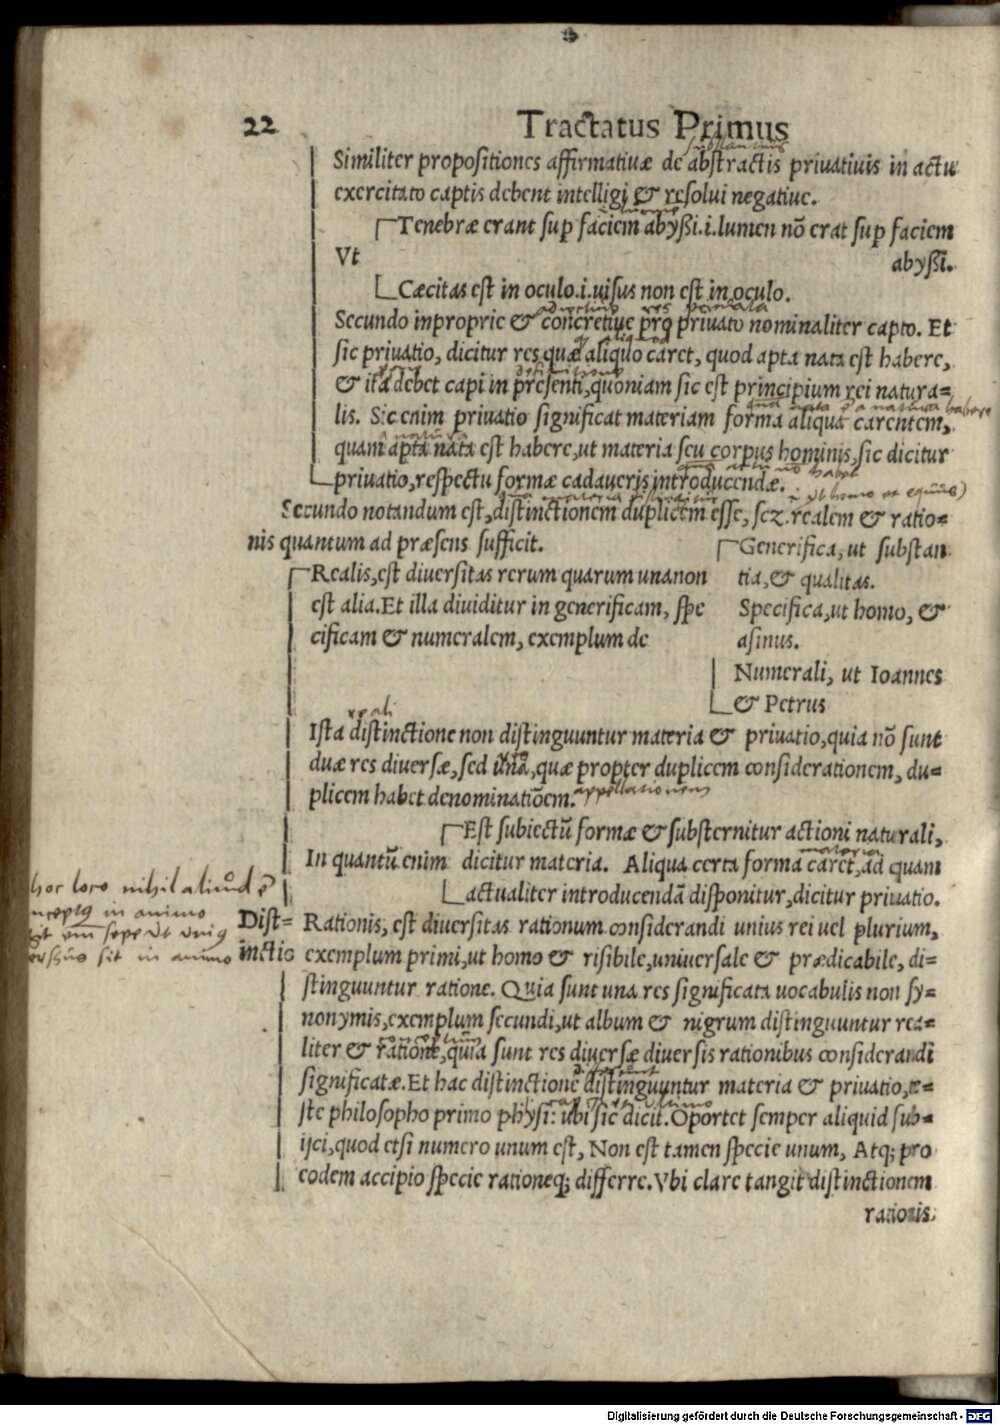 22 Tractatus Primus
Similiter propositiones affirmatiuæ de abstractis priuatiuis in actu
exercitato captis debent intelligi & resolui negatiue.
Tenebræ erant sup faciem abyßi.i.lumen nõ erat sup faciem
Vt abyßi.
Cæcitas est in oculo.i.uisus non est in oculo.
Secundo inproprie & concretiue pro priuato nominaliter capto. Et
sic priuatio, dicitur res quæ aliquo caret, quod apta nata est habere,
& ita debet capi in presenti, quoniam sic est principium rei natura=
lis. Sic enim priuatio significat materiam forma aliqua carentem,
quam apta nata est habere, ut materia seu corpus hominis, sic dicitur
priuatio, respectu formæ cadaueris introducendæ.
Secundo notandum est, distinctionem duplicem esse, sez. realem & ratio=
nis quantum ad præsens sufficit.
Realis, est diuersitas rerum quarum una non
est alia. Et illa diuiditur in generificam, spe
cificam & numeralem, exemplum de
Generifica, ut substan
tia, & qualitas.
Specifica, ut homo, &
asinus.
Numerali, ut Ioannes
& Petrus
reali
Ista distinctione non distinguuntur materia & priuatio, quia nõ sunt
duæ res diuersæ, sed una, quæ propter duplicem considerationem, du=
plicem habet denominatiõem. appellationem
Est subiectũ formæ & substernitur actioni naturali,
In quantũ enim dicitur materia. Aliqua certa forma caret, ad quam
actualiter introducendã disponitur, dicitur priuatio.
hoc loco nihil aliud
in animo
sit in animo
Dist=
inctio
Rationis, est diuersitas rationum considerandi unius rei uel plurium,
exemplum primi, ut homo & risibile, uniuersale & prædicabile, di=
stinguuntur ratione. Quia sunt una res significata uocabulis non sy=
nonymis, exemplum secundi, ut album & nigrum distinguuntur rea=
liter & ratione, quia sunt res diuersæ diuersis rationibus considerandi
significatæ. Et hac distinctione distinguuntur materia & priuatio, te=
ste philosopho primo physi: ubi sic dicit. Oportet semper aliquid sub=
ijci, quod etsi numero unum est, Non est tamen specie unum, Atq; pro
eodem accipio specie rationeq; differre. Vbi clare tangit distinctionem
rationis.
Digitalisierung gefördert durch die Deutsche Forschungsgemeinschaft - DFG